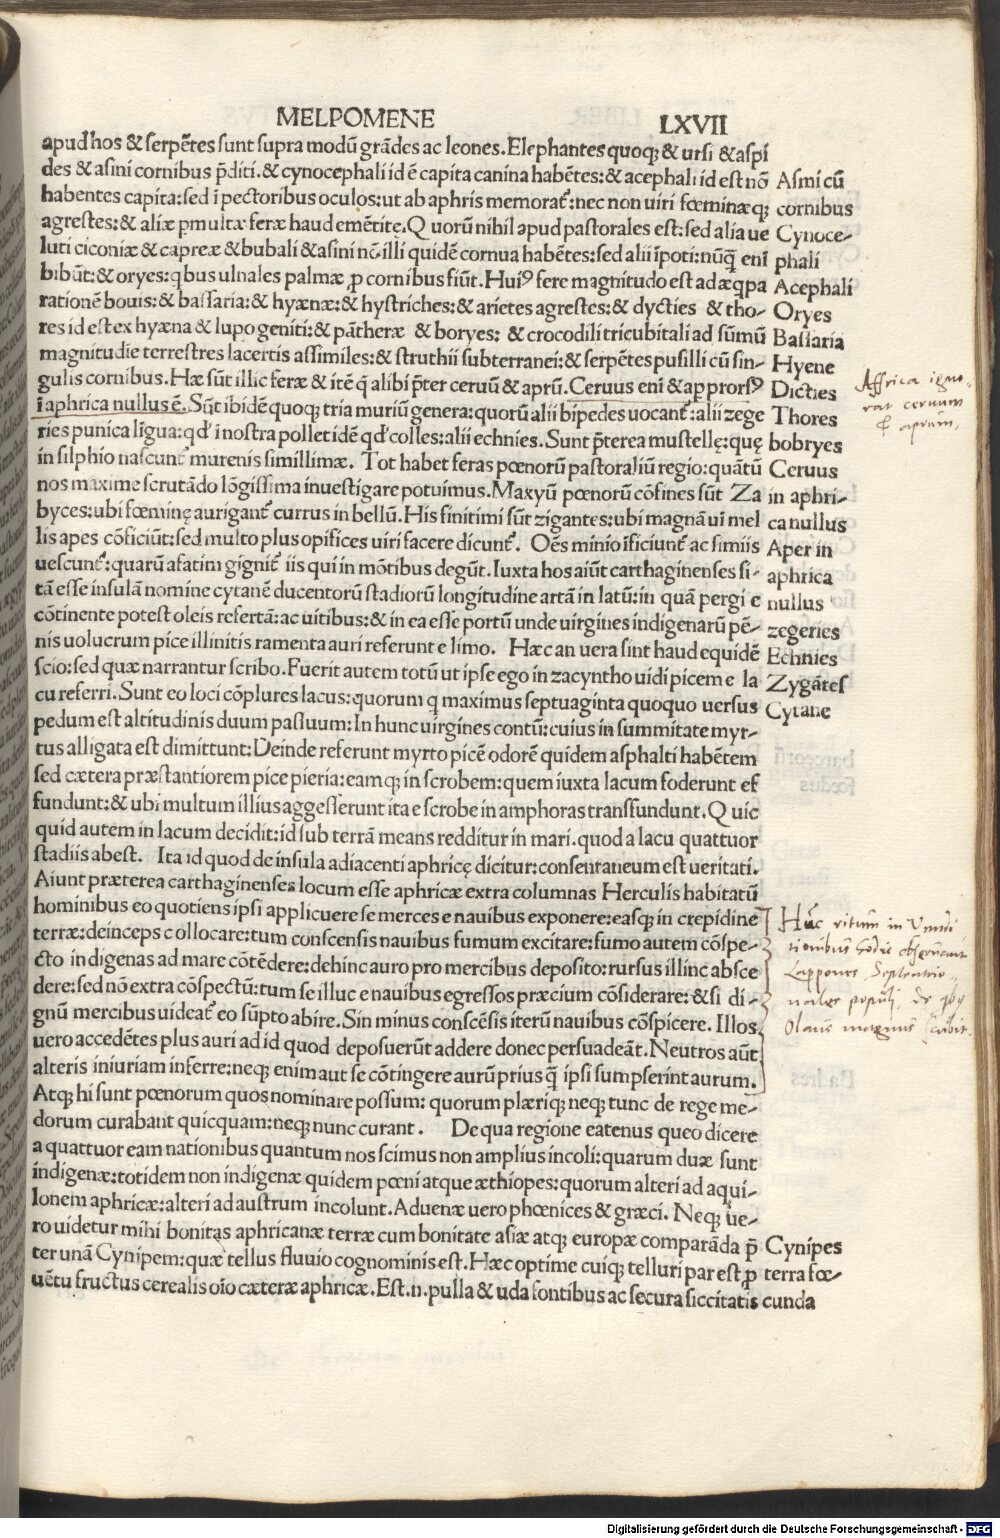 MELPOMENE LXVII
apud hos & serpētes sunt supra modū grādes ac leones. Elephantes quoqꝫ & ursi & aspi
des & asini cornibus p̄diti. & cynocephali id ē capita canina habētes: & acephali id est nō
habentes capita: sed ī pectoribus oculos: ut ab aphris memorat᷒: nec non uiri fœminæqꝫ
agrestes: & aliæ pmultæ feræ haud emētitę. Quorū nihil apud pastorales est: sed alia ue
luti ciconiæ & capreæ & bubali & asini nō illi quidē cornua habētes: sed alii īpoti: nūq̄ eni
bibūt: & oryes: qbus ulnales palmæ ꝓ cornibus fiūt. Huiꝰ fere magnitudo est ad æqpa
rationē bouis: & bassaria: & hyænæ: & hystriches: & arietes agrestes: & dycties & tho-
res id est ex hyæna & lupo geniti: & pātheræ & boryes: & crocodili tricubitali ad sūmū
magnitudīe terrestres lacertis assimiles: & struthii subterranei: & serpētes pusilli cū sin-
gulis cornibus. Hæ sūt illic feræ & itē q̄ alibi p̄ter ceruū & aprū. Ceruus enī & ap prorsꝰ
ī aphrica nullus ē. Sūt ibidē quoqꝫ tria muriū genera: quorū alii bipedes uocant᷒: alii zege
ries punica līgua: qd' i nostra pollet idē qd' colles: alii echnies. Sunt p̄terea mustellę: quę
in silphio nascunt᷒ murenis simillimæ. Tot habet feras pœnorū pastoraliū regio: quātū
nos maxime scrutādo lōgissima inuestigare potuimus. Maxyū pœnorū cōfines sūt Za
byces: ubi fœminę aurigant᷒ currus in bellū. His finitimi sūt zigantes: ubi magnā uī mel
lis apes cōficiūt: sed multo plus opifices uiri facere dicunt᷒. Oēs minio īficiunt᷒ ac simiis
uescunt᷒: quarū afatim gignit᷒ iis qui in mōtibus degūt. Iuxta hos aiūt carthaginenses si-
tā esse insulā nomine cytanē ducentorū stadiorū longitudine artā in latū: in quā pergi e
cōtinente potest oleis refertā: ac uitibus: & in ea esse portū unde uirgines indigenarū pē-
nis uolucrum pice illinitis ramenta auri referunt e limo. Hæc an uera sint haud equidē
scio: sed quæ narrantur scribo. Fuerit autem totū ut ipse ego in zacyntho uidi picem e la
cu referri. Sunt eo loci cōplures lacus: quorum q maximus septuaginta quoquo uersus
pedum est altitudinis duum passuum: In hunc uirgines contū: cuius in summitate myr-
tus alligata est dimittunt: Deinde referunt myrto picē odorē quidem asphalti habētem
sed cætera præstantiorem pice pieria: eamqꝫ in scrobem: quem iuxta lacum foderunt ef
fundunt: & ubi multum illius aggesserunt ita e scrobe in amphoras transfundunt. Quic
quid autem in lacum decidit: id sub terrā means redditur in mari. quod a lacu quattuor
stadiis abest. Ita id quod de insula adiacenti aphricę dicitur: consentaneum est ueritati.
Aiunt præterea carthaginenses locum esse aphricæ extra columnas Herculis habitatū
hominibus eo quotiens ipsi applicuere se merces e nauibus exponere: easqꝫ in crepidine
terræ: deinceps collocare: tum conscensis nauibus fumum excitare: fumo autem cōspe-
cto indigenas ad mare cōtēdere: dehinc auro pro mercibus deposito: rursus illinc absce
dere: sed nō extra cōspectū: tum se illuc e nauibus egressos præcium cōsiderare: & si di-
gnū mercibus uideat᷒ eo sūpto abire. Sin minus conscēsis iterū nauibus cōspicere. Illos
uero accedētes plus auri ad id quod deposuerūt addere donec persuadeāt. Neutros aūt
alteris iniuriam inferre: neqꝫ enim aut se cōtingere aurū prius q̄ ipsi sumpserint aurum.
Atqꝫ hi sunt pœnorum quos nominare possum: quorum plæriqꝫ neqꝫ tunc de rege me-
dorum curabant quicquam: neqꝫ nunc curant. De qua regione eatenus queo dicere
a quattuor eam nationibus quantum nos scimus non amplius incoli: quarum duæ sunt
indigenæ: totidem non indigenæ quidem pœni atque æthiopes: quorum alteri ad aqui-
lonem aphricæ: alteri ad austrum incolunt. Aduenæ uero phœnices & græci. Neqꝫ ue-
ro uidetur mihi bonitas aphricanæ terræ cum bonitate asiæ atqꝫ europæ comparāda p̄
ter unā Cynipem: quæ tellus fluuio cognominis est. Hæc optime cuiqꝫ telluri par est ꝓ
uētu fructus cerealis oīo cæteræ aphricæ. Est. n. pulla & uda fontibus ac secura siccitatis
Asini cū
cornibus
Cynoce-
phali
Acephali
Oryes
Bassaria
Hyene
Dicties
Thores
bobryes
Ceruus
in aphri-
ca nullus
Aper in
aphrica
nullus
zegeries
Echnies
Zygātes
Cytane
Cynipes
terra fœ-
cunda
Affrica igno-
rat ceruum
& aprum.
Hūc ritum in Vendi
tionibus
Lappones Septentrio-
nales populi. de qbꝫ
Olaus magnus scribit.